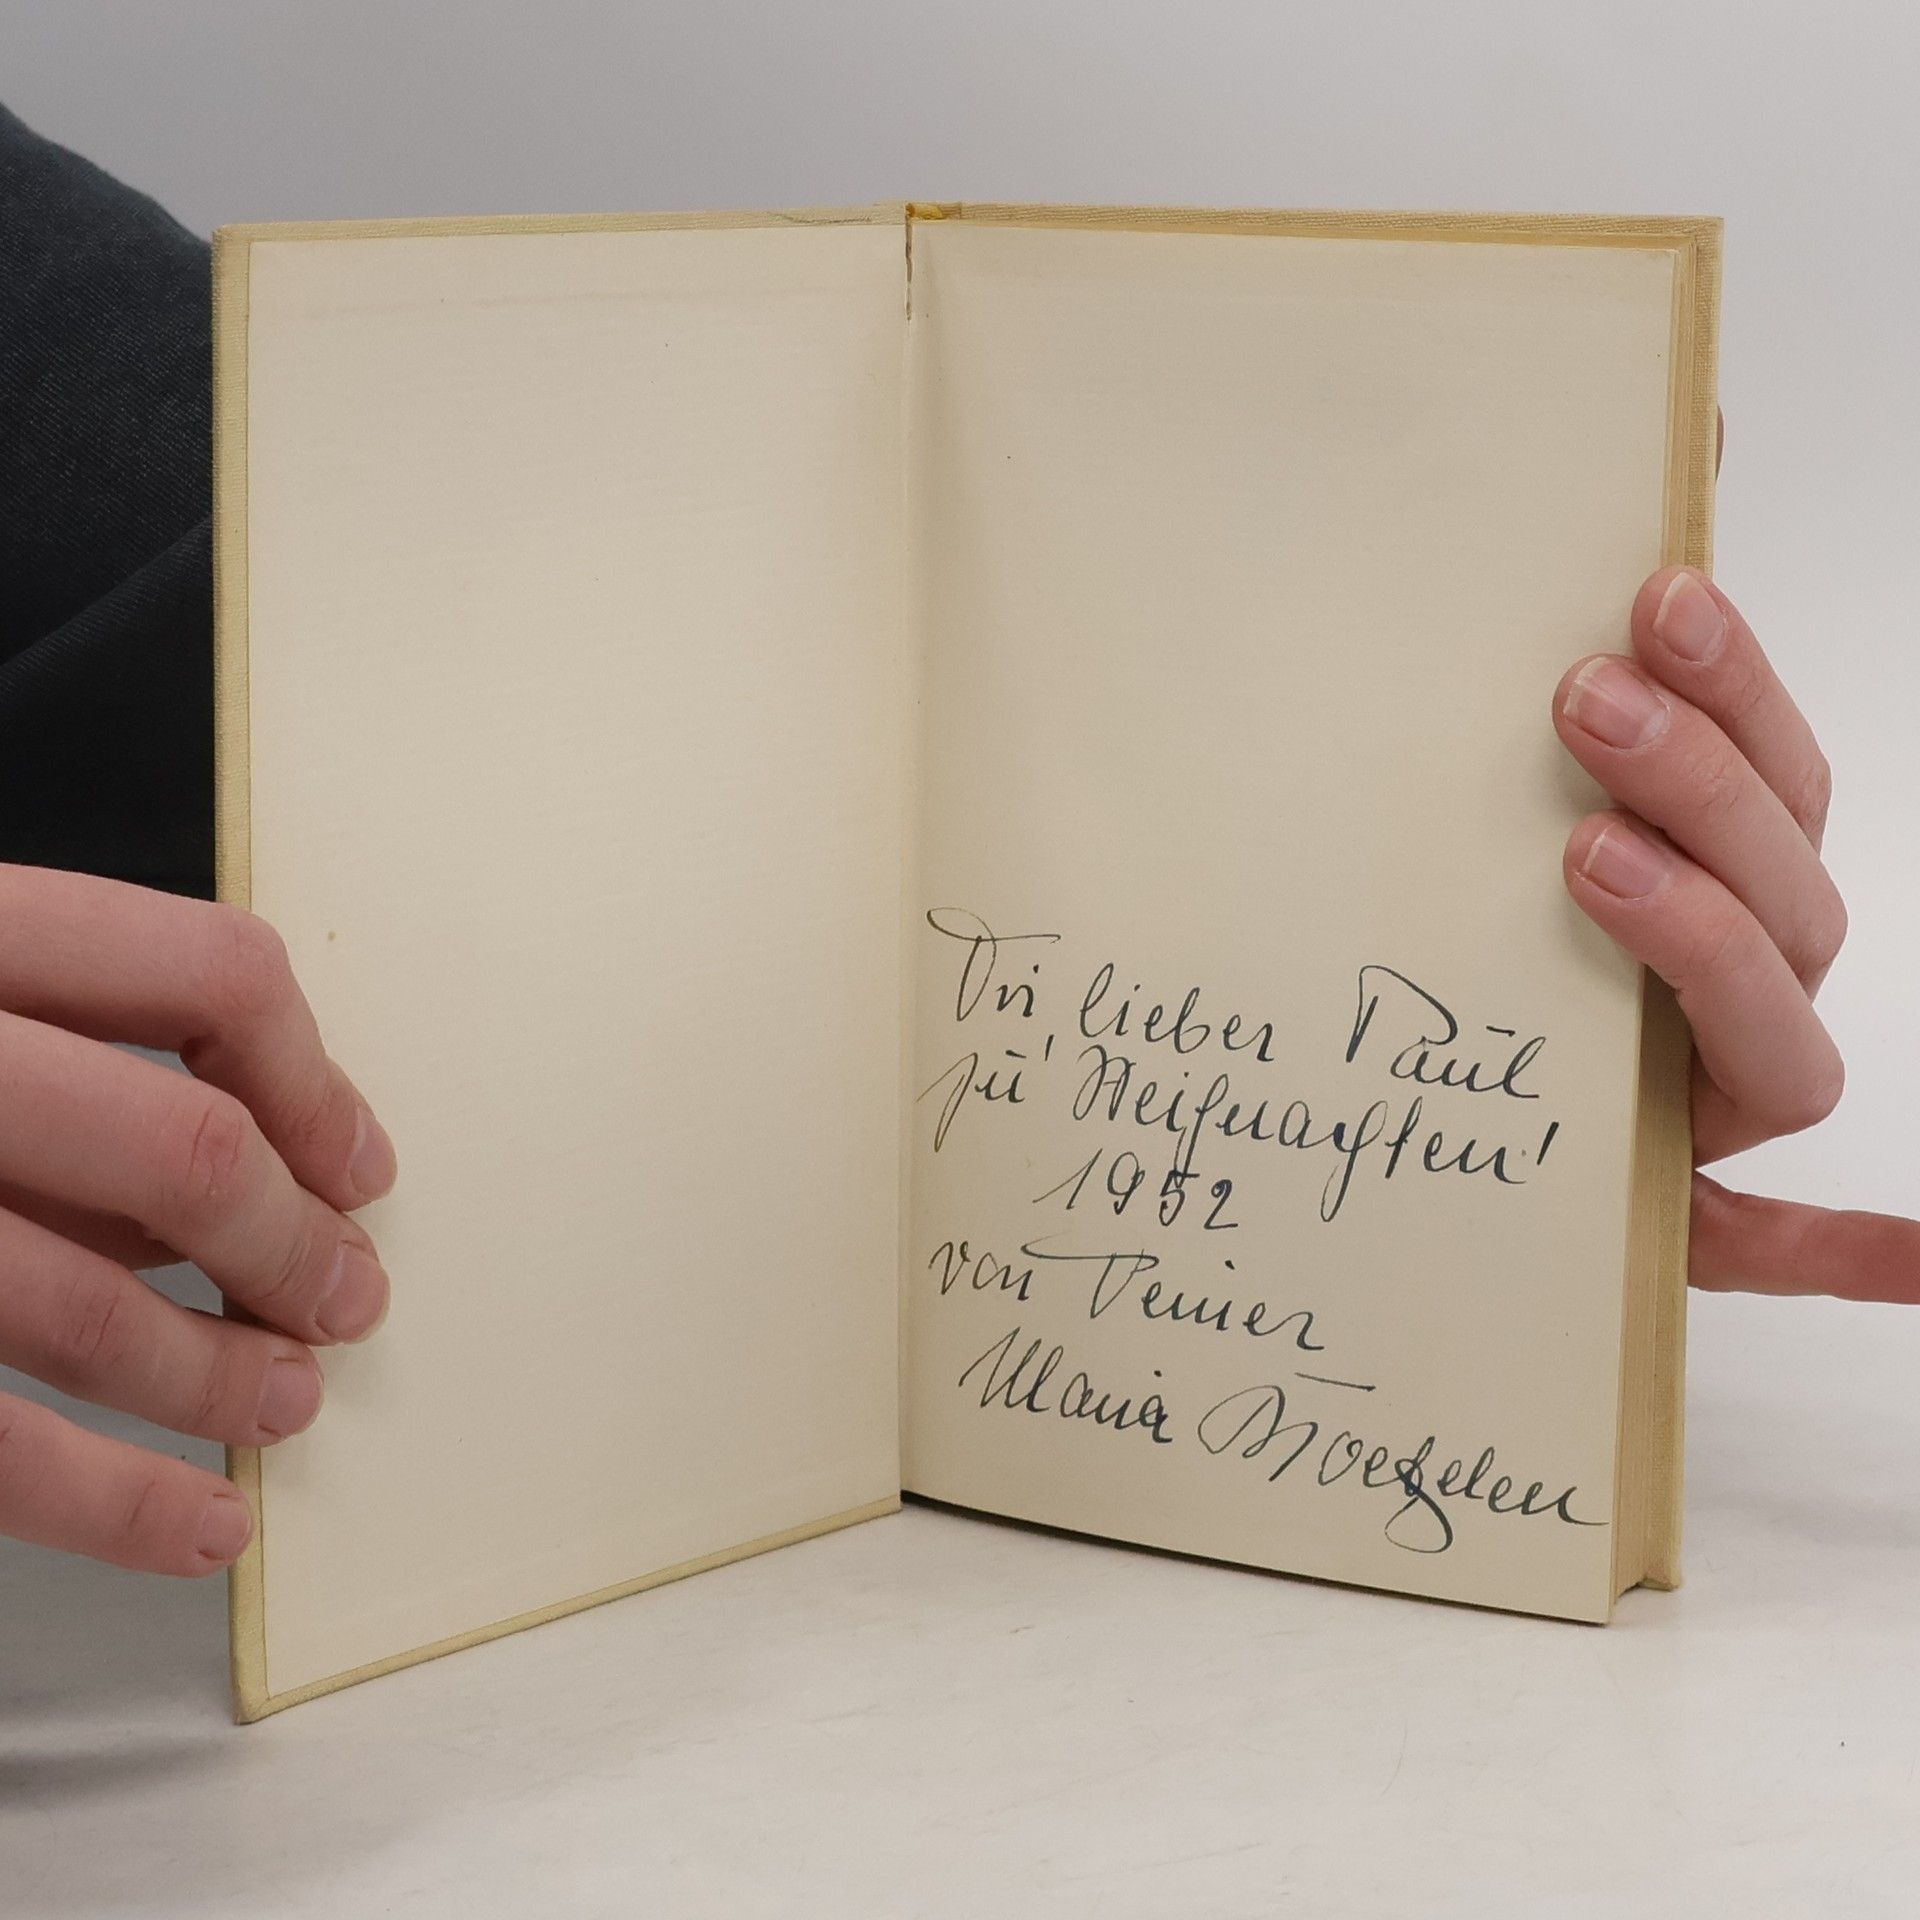 Dir, lieber Paul
zu Weihnachten!
1952
von Deiner
Maria